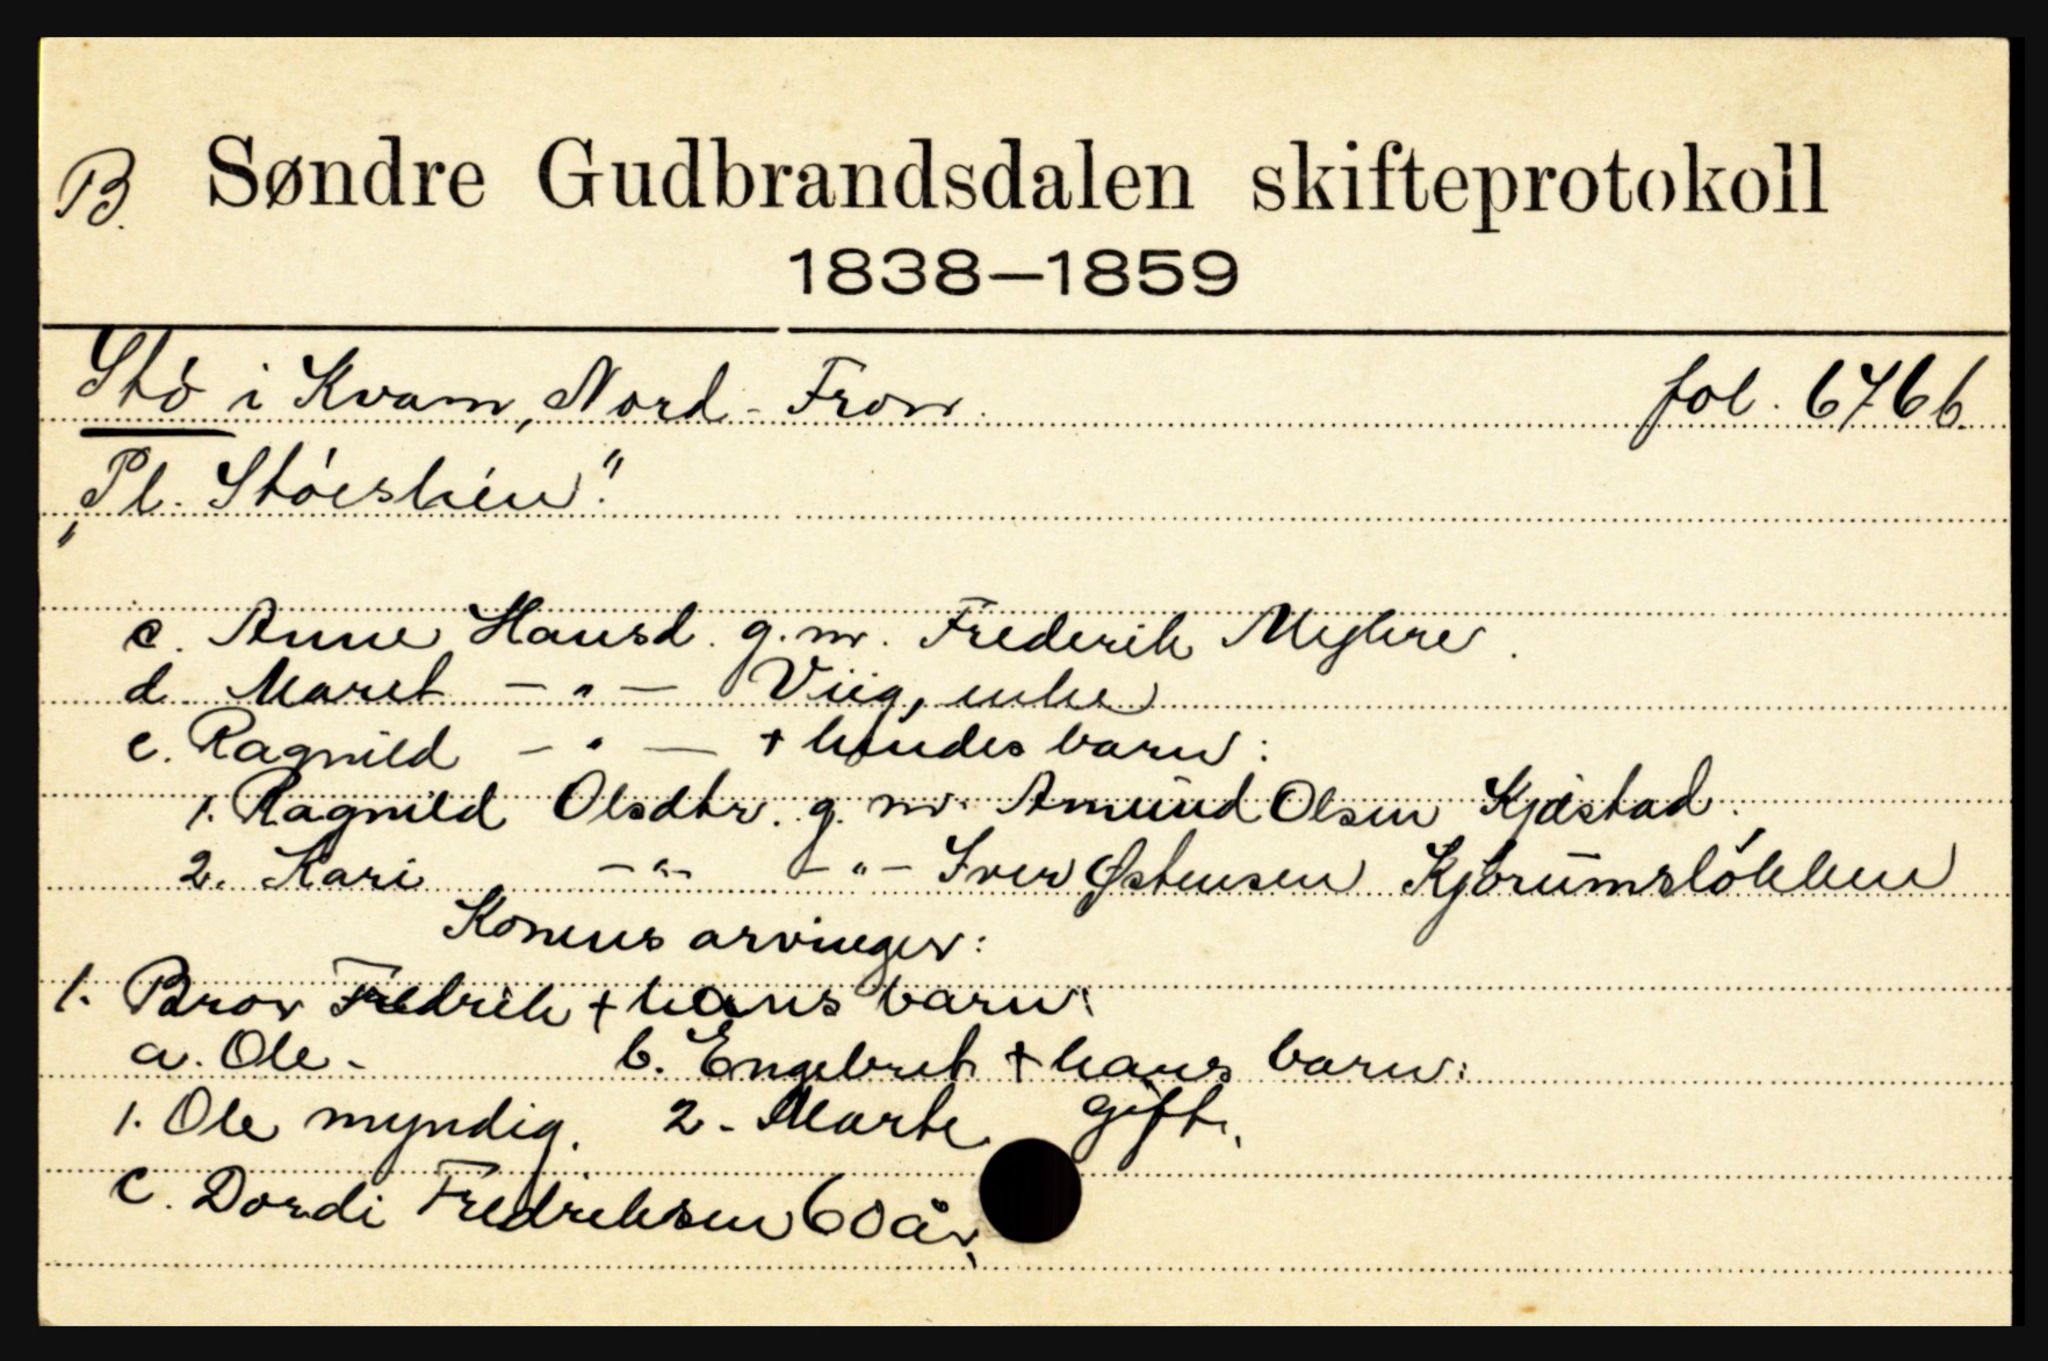 B. Søndre Gudbrandsdalen skifteprotokoll
1838—1859
Stó i Kvam, Nord-Fron. fol. 676b.
„Pl. Stóeslien".
c. Anne Hansd. g.m. Frederik Myhre.
d. Maret —"— Viig, enke
e. Ragnild —"— + hendes barn:
1. Ragnild Olsdtr. g. m. Amund Olsen Kjæstad.
2. Kari —"— —"— Iver Østensen Kjørumsløkken
Konens arvinger:
1. Bror Fredrik + hans barn:
a. Ole - b. Engebret + hans barn:
1. Ole myndig. 2. Marte gift.
c. Dordi Fredriksen 60 år.